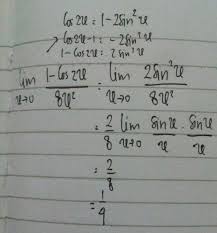 cos 2u = 1 - 2 sin² u
cos 2u - 1 = - 2 sin² u
1 - cos 2u = 2 sin² u
lim u→0 (1 - cos 2u)/(8u²) = lim u→0 (2 sin² u)/(8u²)
= 2/8 lim u→0 (sin u)/u · (sin u)/u
= 2/8
= 1/4